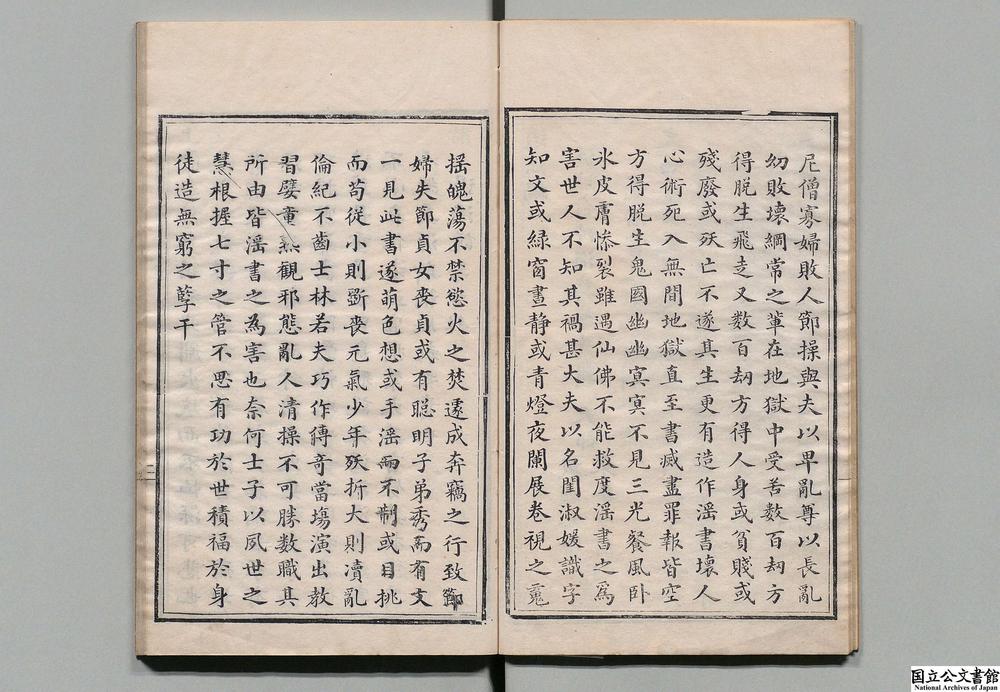 尼僧寡婦敗人節操與夫以卑亂尊以長亂
幼敗壞綱常之輩在地獄中受苦數百刼方
得脱生飛走又數百刼方得人身或貧賤或
殘廢或殀亡不遂其生更有造作滛書壞人
心術死入無間地獄直至書滅盡罪報皆空
方得脱生鬼國幽幽冥冥不見三光餐風卧
氷皮膚慘裂雖遇仙佛不能救度滛書之爲
害世人不知其禍甚大夫以名閨淑媛識字
知文或緑窗晝静或青燈夜闌展卷視之䰟
揺魄蕩不禁慾火之焚遽成奔竊之行致節
婦失節貞女喪貞或有聰明子弟秀而有文
一見此書遂萌色想或手滛而不制或目挑
而苟從小則斲喪元氣少年殀折大則凟亂
倫紀不齒士林若夫巧作傳竒當塲演出教
習嬖童𤍠觀邪態亂人清操不可勝數職其
所由皆滛書之為害也奈何士子以夙世之
慧根握七寸之管不思有功於世積福於身
徒造無窮之孽干
二
国立公文書館
National Archives of Japan